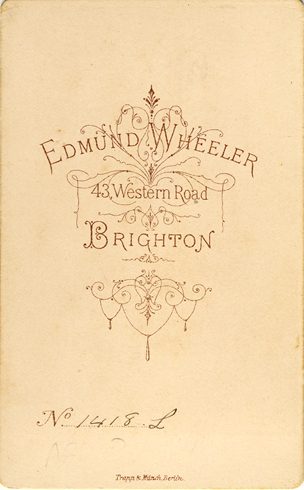 EDMUND WHEELER
43, Western Road
BRIGHTON
No 1418 L
Trapp & Münch, Berlin.